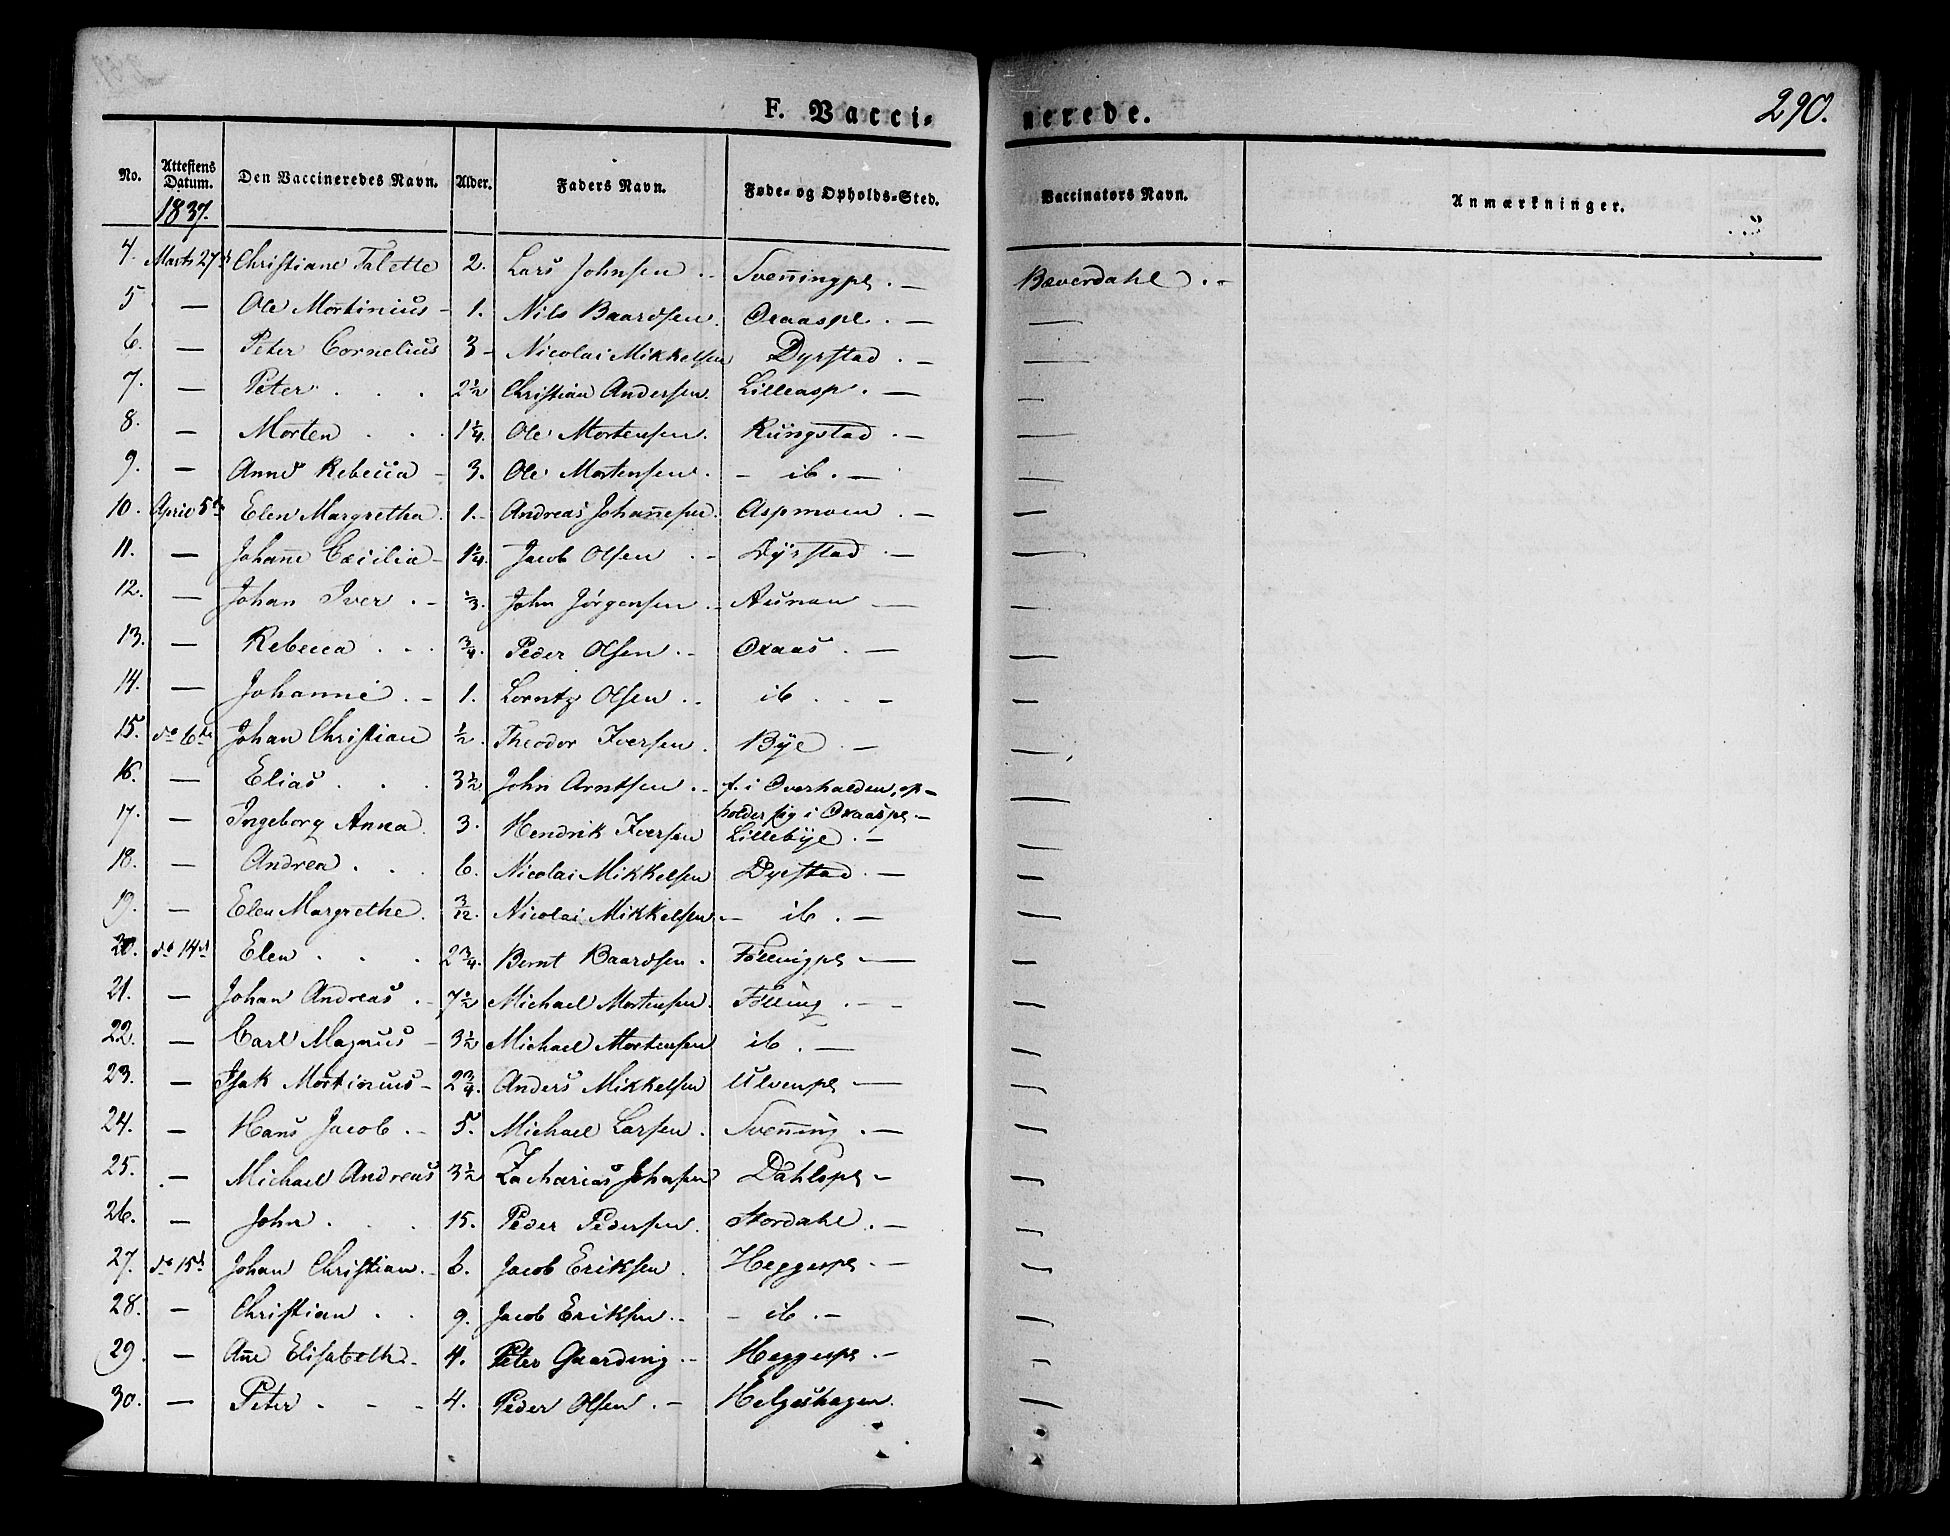 F. Vacci-
nerede.
290.
No.
Attestens Datum.
Den Vaccineredes Navn.
Alder.
Faders Navn.
Føde- og Opholds-Sted.
Vaccinators Navn.
Anmærkninger.
1837.
4. Marts 27d Christiane Talette 2. Lars Johnsen .. Sven̄ingpl. — Bæverdahl ..
5 — Ole Mortinius — 1. Nils Baardsen. Oxaaspl. — —
6. — Peter Cornelius 3 — Nicolai Mikkelsen Dyrstad . — —
7. — Peter . . . 2½ Christian Andersen. Lilleasp . — —
8. — Morten . . . 1¼. Ole Mortensen. Rungstad . — —
9. — Anne Rebecca — 3. Ole Mortensen. — ib. — —
10. April 5te Elen Margretha. 1. Andreas Johan̄esen. Aspmoen . — —
11. — Johan̄e Cæcilia — 1¼. Jacob Olsen .. Dyrstad . — —
12. — Johan Iver . — ⅓. John Jørgensen .. Aunan — —
13. — Rebecca . . . ¾. Peder Olsen .. Oxaas . — —
14. — Johanne . — 1. Lorntz Olsen .. ib . . — —
15. do 6te Johan Christian ½. Theodor Iversen . Bye . — —
16. — Elias . . . 3½ John Arntsen .. f. i Overhalden, op-
holder sig i Oxaaspl. — —
17. — Ingeborg Anna. 3. Hendrik Iversen Lillebye . — —
18. — Andrea . . . 6. Nicolai Mikkelsen Dyrstad . — —
19. — Elen Margrethe. 3/12. Nicolai Mikkelsen — ib . — —
20. do 14d Elen . . . 2¾. Bernt Baardsen . Føllingpl — —
21. — Johan Andreas . — 7½ Michael Mortensen. Følling . — —
22. — Carl Magnus — 3½ Michael Mortensen ib . — —
23. — Isak Mortinius — 2¾. Anders Mikkelsen Ulvenpl — —
24. — Hans Jacob . — 5. Michael Larsen . Sven̄ing . — —
25. — Michael Andreas 3½ Zacharias Johnsen Dahlspl — —
26. — John . . . 15. Peder Pedersen . Stordahl . — —
27. do 15d Johan Christian . 6. Jacob Eriksen . Heggespl . — —
28. — Christian . . 9. Jacob Eriksen .. — ib . — —
29. — An̄e Elisabeth . — 4. Peter Gaarding .. Heggespl . — —
30. — Peter . — — 4. Peder Olsen . — Helgeshagen. —